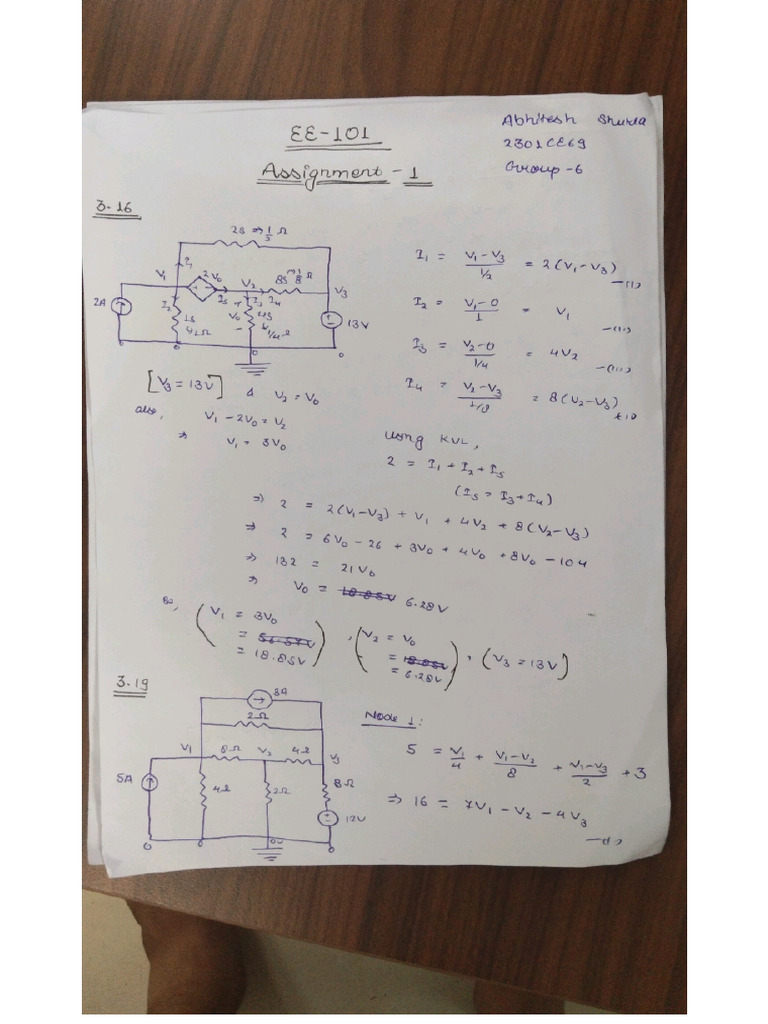 EE-101
Assignment-1
Abhitesh Shukla
2301CE69
Group-6
3.16
2S ⇒ 1/2 Ω
V1
I1
2V0
V2
8S ⇒ 1/8 Ω
V3
2A
I2
1S
1Ω
I5
I3
I4
V0
4S
1/4 Ω
13V
I1 = (V1-V3)/(1/2) = 2(V1-V3) —(i)
I2 = (V1-0)/1 = V1 —(ii)
I3 = (V2-0)/(1/4) = 4V2 —(iii)
I4 = (V2-V3)/(1/8) = 8(V2-V3)
[V3 = 13V] & V2 = V0
also,
V1 - 2V0 = V2
⇒ V1 = 3V0
using KVL,
2 = I1 + I2 + I5
(I5 = I3 + I4)
⇒ 2 = 2(V1-V3) + V1 + 4V2 + 8(V2-V3)
⇒ 2 = 6V0 - 26 + 3V0 + 4V0 + 8V0 - 104
⇒ 132 = 21V0
⇒ V0 = 6.28V
so, (V1 = 3V0 = 18.85V), (V2 = V0 = 6.28V), (V3 = 13V)
3.19
3A
2Ω
V1
8Ω
V2
4Ω
V3
5A
4Ω
2Ω
8Ω
12V
0
0V
0
Node 1:
5 = V1/4 + (V1-V2)/8 + (V1-V3)/2 + 3
⇒ 16 = 7V1 - V2 - 4V3 —(i)